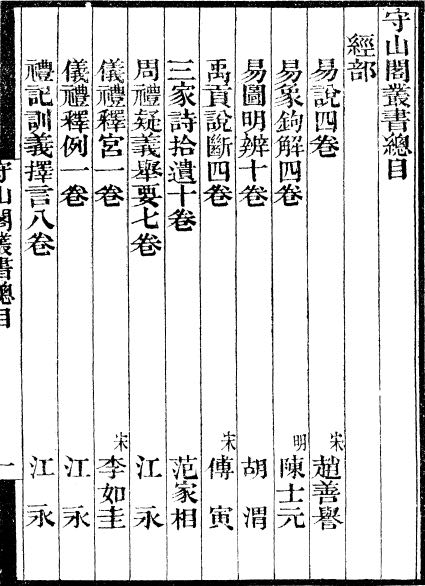 守山閣叢書總目
經部
易說四卷 宋 趙善譽
易象鉤解四卷 明 陳士元
易圖明辨十卷 胡渭
禹貢說斷四卷 宋 傅寅
三家詩拾遺十卷 范家相
周禮疑義舉要七卷 江永
儀禮釋宮一卷 宋 李如圭
儀禮釋例一卷 江永
禮記訓義擇言八卷 江永
守山閣叢書總目 一